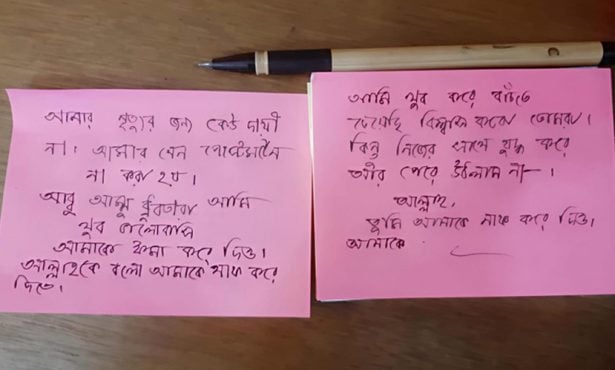 আমার মৃত্যুর জন্য কেউ দায়ী
না। আমার যেন
না করা হয়।
আব্বু আম্মু আমি
খুব ভালোবাসি
আমাকে ক্ষমা করে দিও।
আল্লাহকে বলো আমাকে মাফ করে
দিতে।
আমি খুব করে বাঁচতে
চেয়েছি বিশ্বাস করো তোমরা।
কিন্তু নিজের সাথে যুদ্ধ করে
আর পেরে উঠলাম না।
আল্লাহ,
তুমি আমাকে মাফ করে দিও।
আমাকে